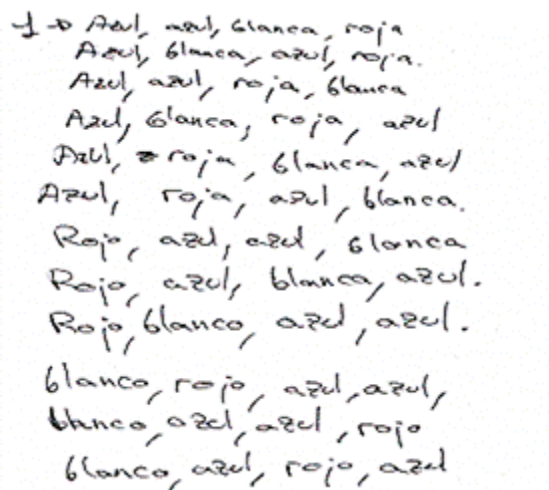 1 → Azul, azul, blanca, roja
Azul, blanca, azul, roja.
Azul, azul, roja, blanca
Azul, blanca, roja, azul
Azul, roja, blanca, azul
Azul, roja, azul, blanca.
Rojo, azul, azul, blanca
Rojo, azul, blanca, azul.
Rojo, blanco, azul, azul.
blanco, rojo, azul, azul,
blanco, azul, azul, rojo
blanco, azul, rojo, azul